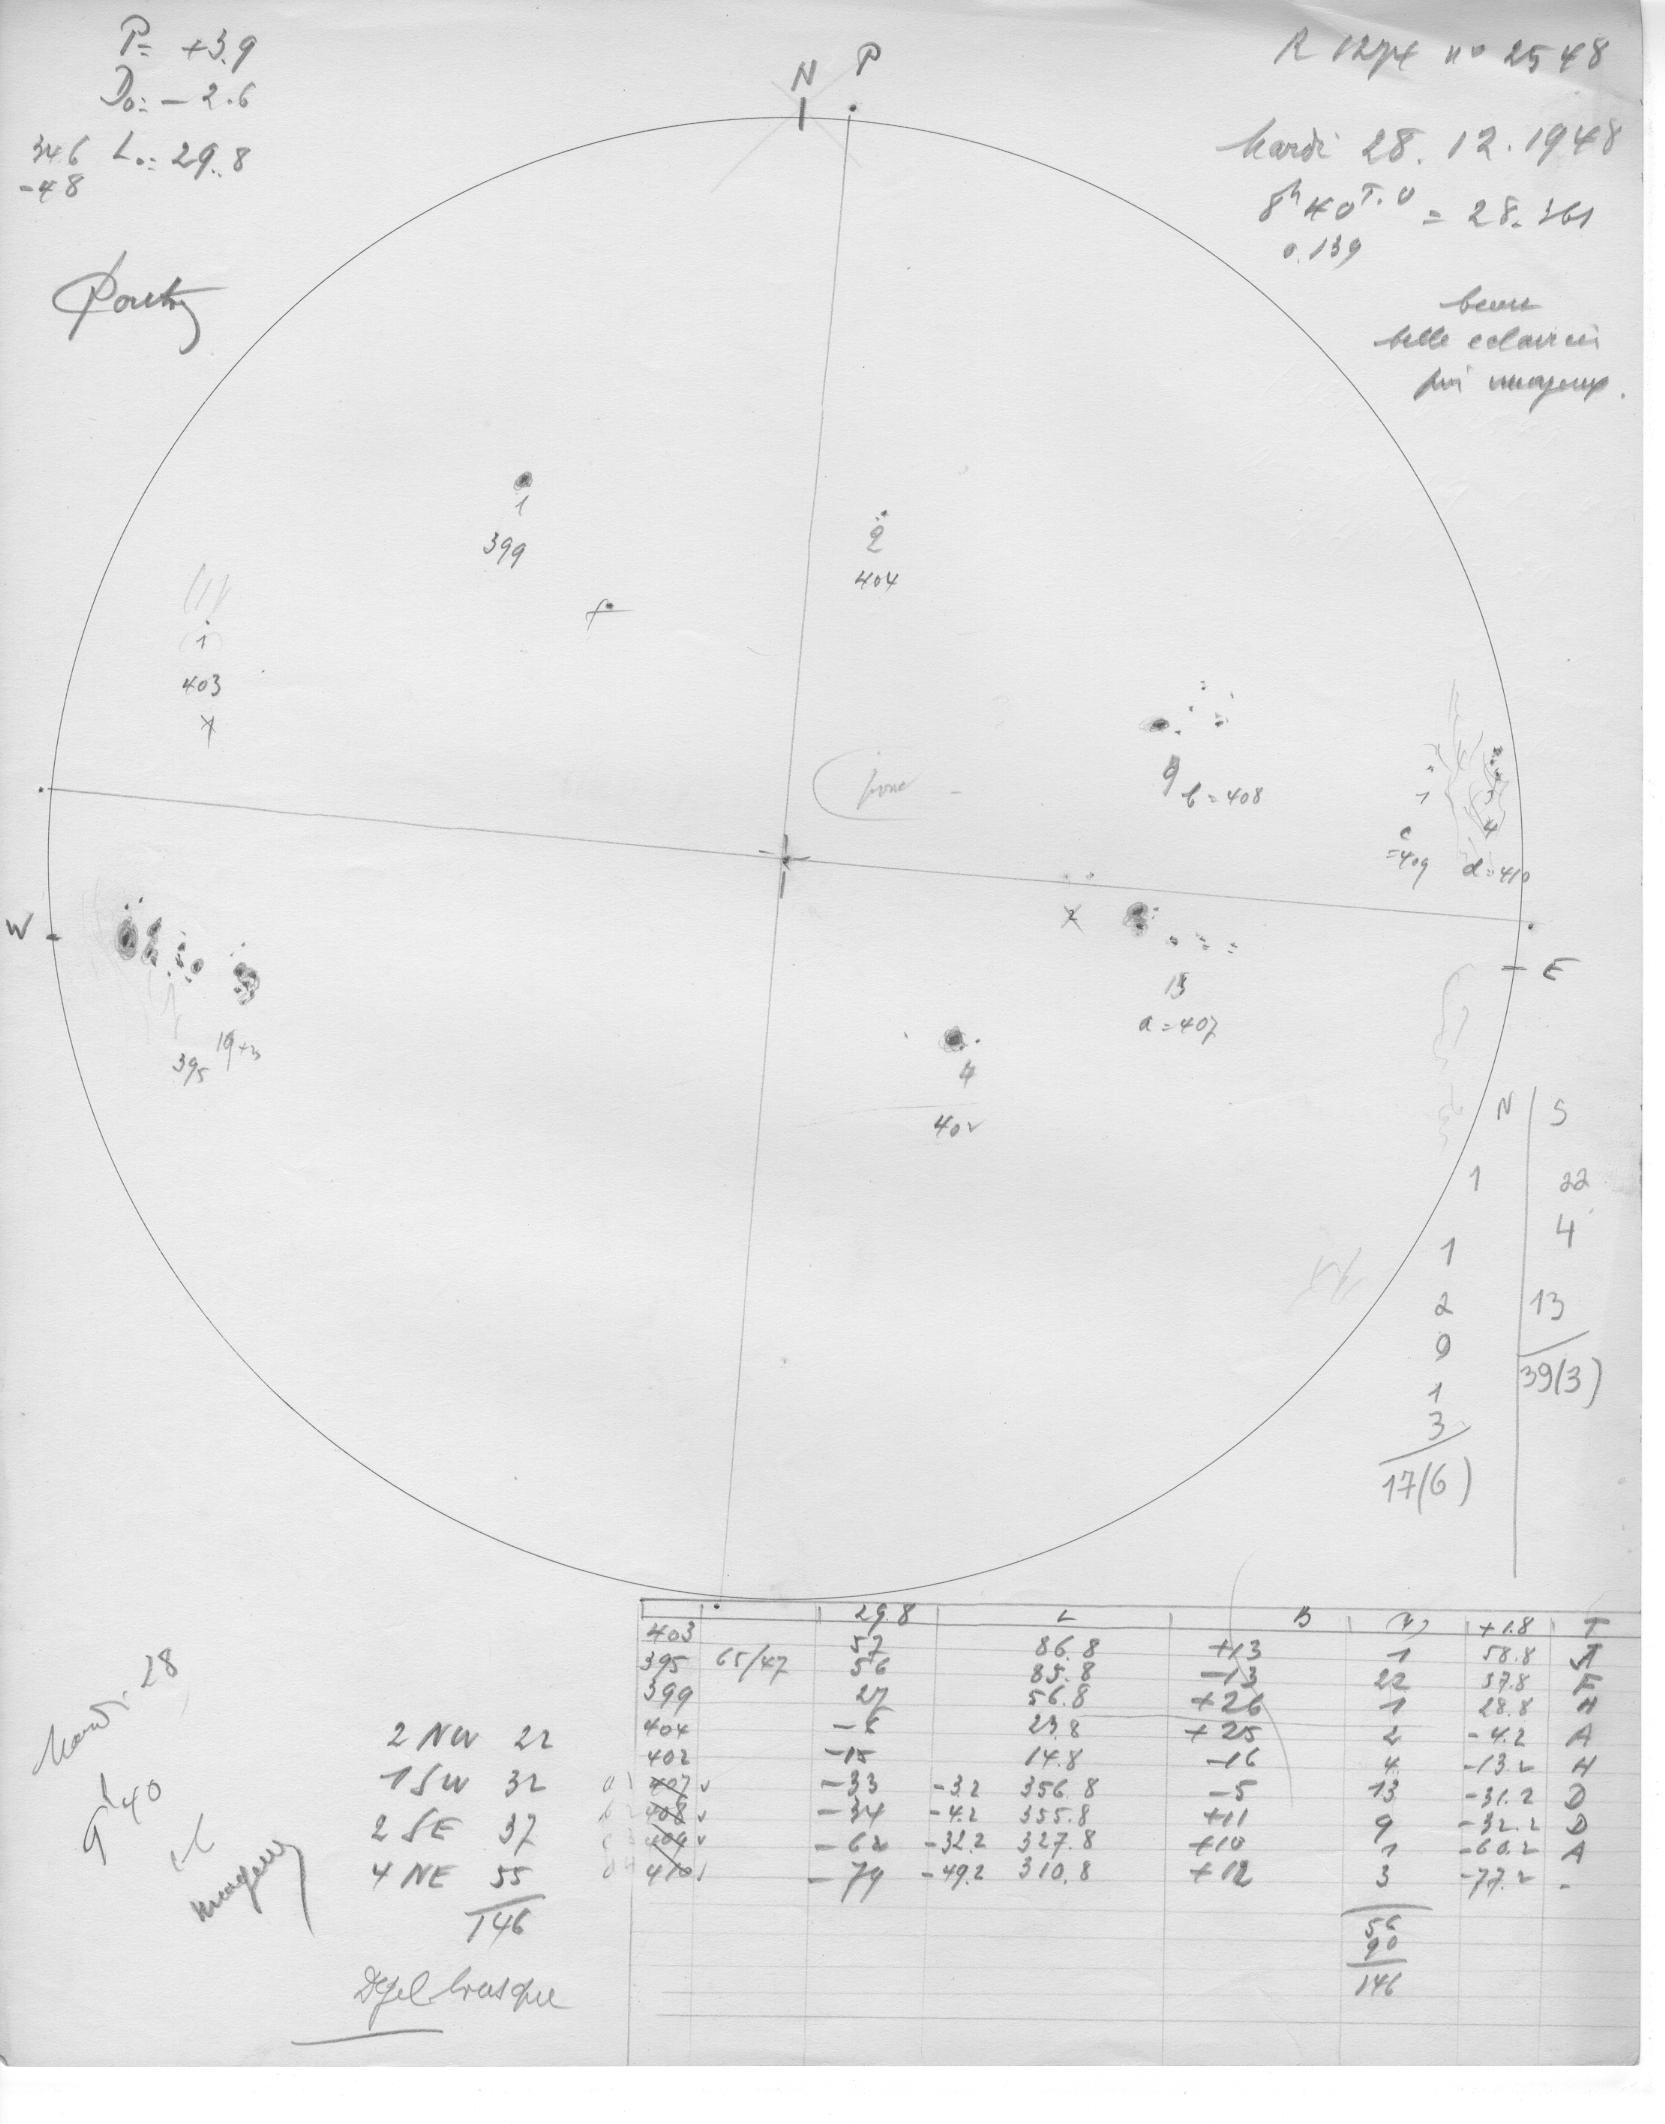 P= +3.9
Do= -2.6
346 Lo= 29.8
-48
N P
no 2548
Mardi 28.12.1948
8h40 T.U = 28.361
0.139
belle eclaircie
puis nuageux.
1
399
2
404
1
403
9
b=408
1
c
=409
4
d=410
W
E
13
a=407
395 19+3
4
402
N S
1 22
1 4
2 13
9 39(3)
1
3
17(6)
29.8 L B +1.8 T
403 57 86.8 +13 1 58.8 A
395 65/47 56 85.8 -13 22 57.8 F
399 27 56.8 +26 1 28.8 H
404 -6 23.8 +25 2 -4.2 A
402 -15 14.8 -16 4 -13.2 H
407 -33 -3.2 356.8 -5 13 -31.2 D
408 -34 -4.2 355.8 +11 9 -32.2 D
409 -62 -32.2 327.8 +10 1 -60.2 A
410 -79 -49.2 310.8 +12 3 -77.2 -
56
90
146
Mardi 28
9h40
nuageux
2 NW 22
1 SW 32
2 SE 37
4 NE 55
146
Degel brusque